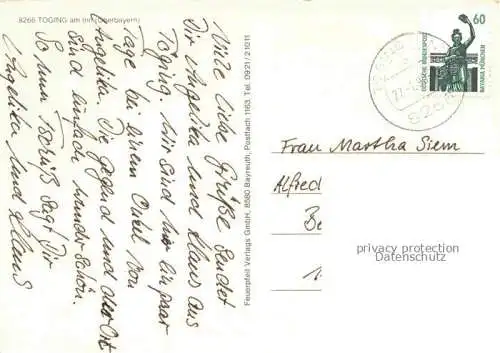 8266 TÖGING am Inn (Oberbayern)
Viele liebe Grüße sendet
Dir Angelika und Klaus aus
Töging. Wir sind hier ein paar
Tage bei einem Onkel von
Angelika. Die Gegend und der Ort
sind einfach wunderschön.
So nun Tschüß sagt Dir
Angelika und Klaus
Feuerpfeil Verlags GmbH, 8580 Bayreuth, Postfach 1163, Tel. 0921/21011
60
DEUTSCHE BUNDESPOST
BAVARIA MÜNCHEN
Frau Martha Siem
Alfred
Be
1
privacy protection
Datenschutz